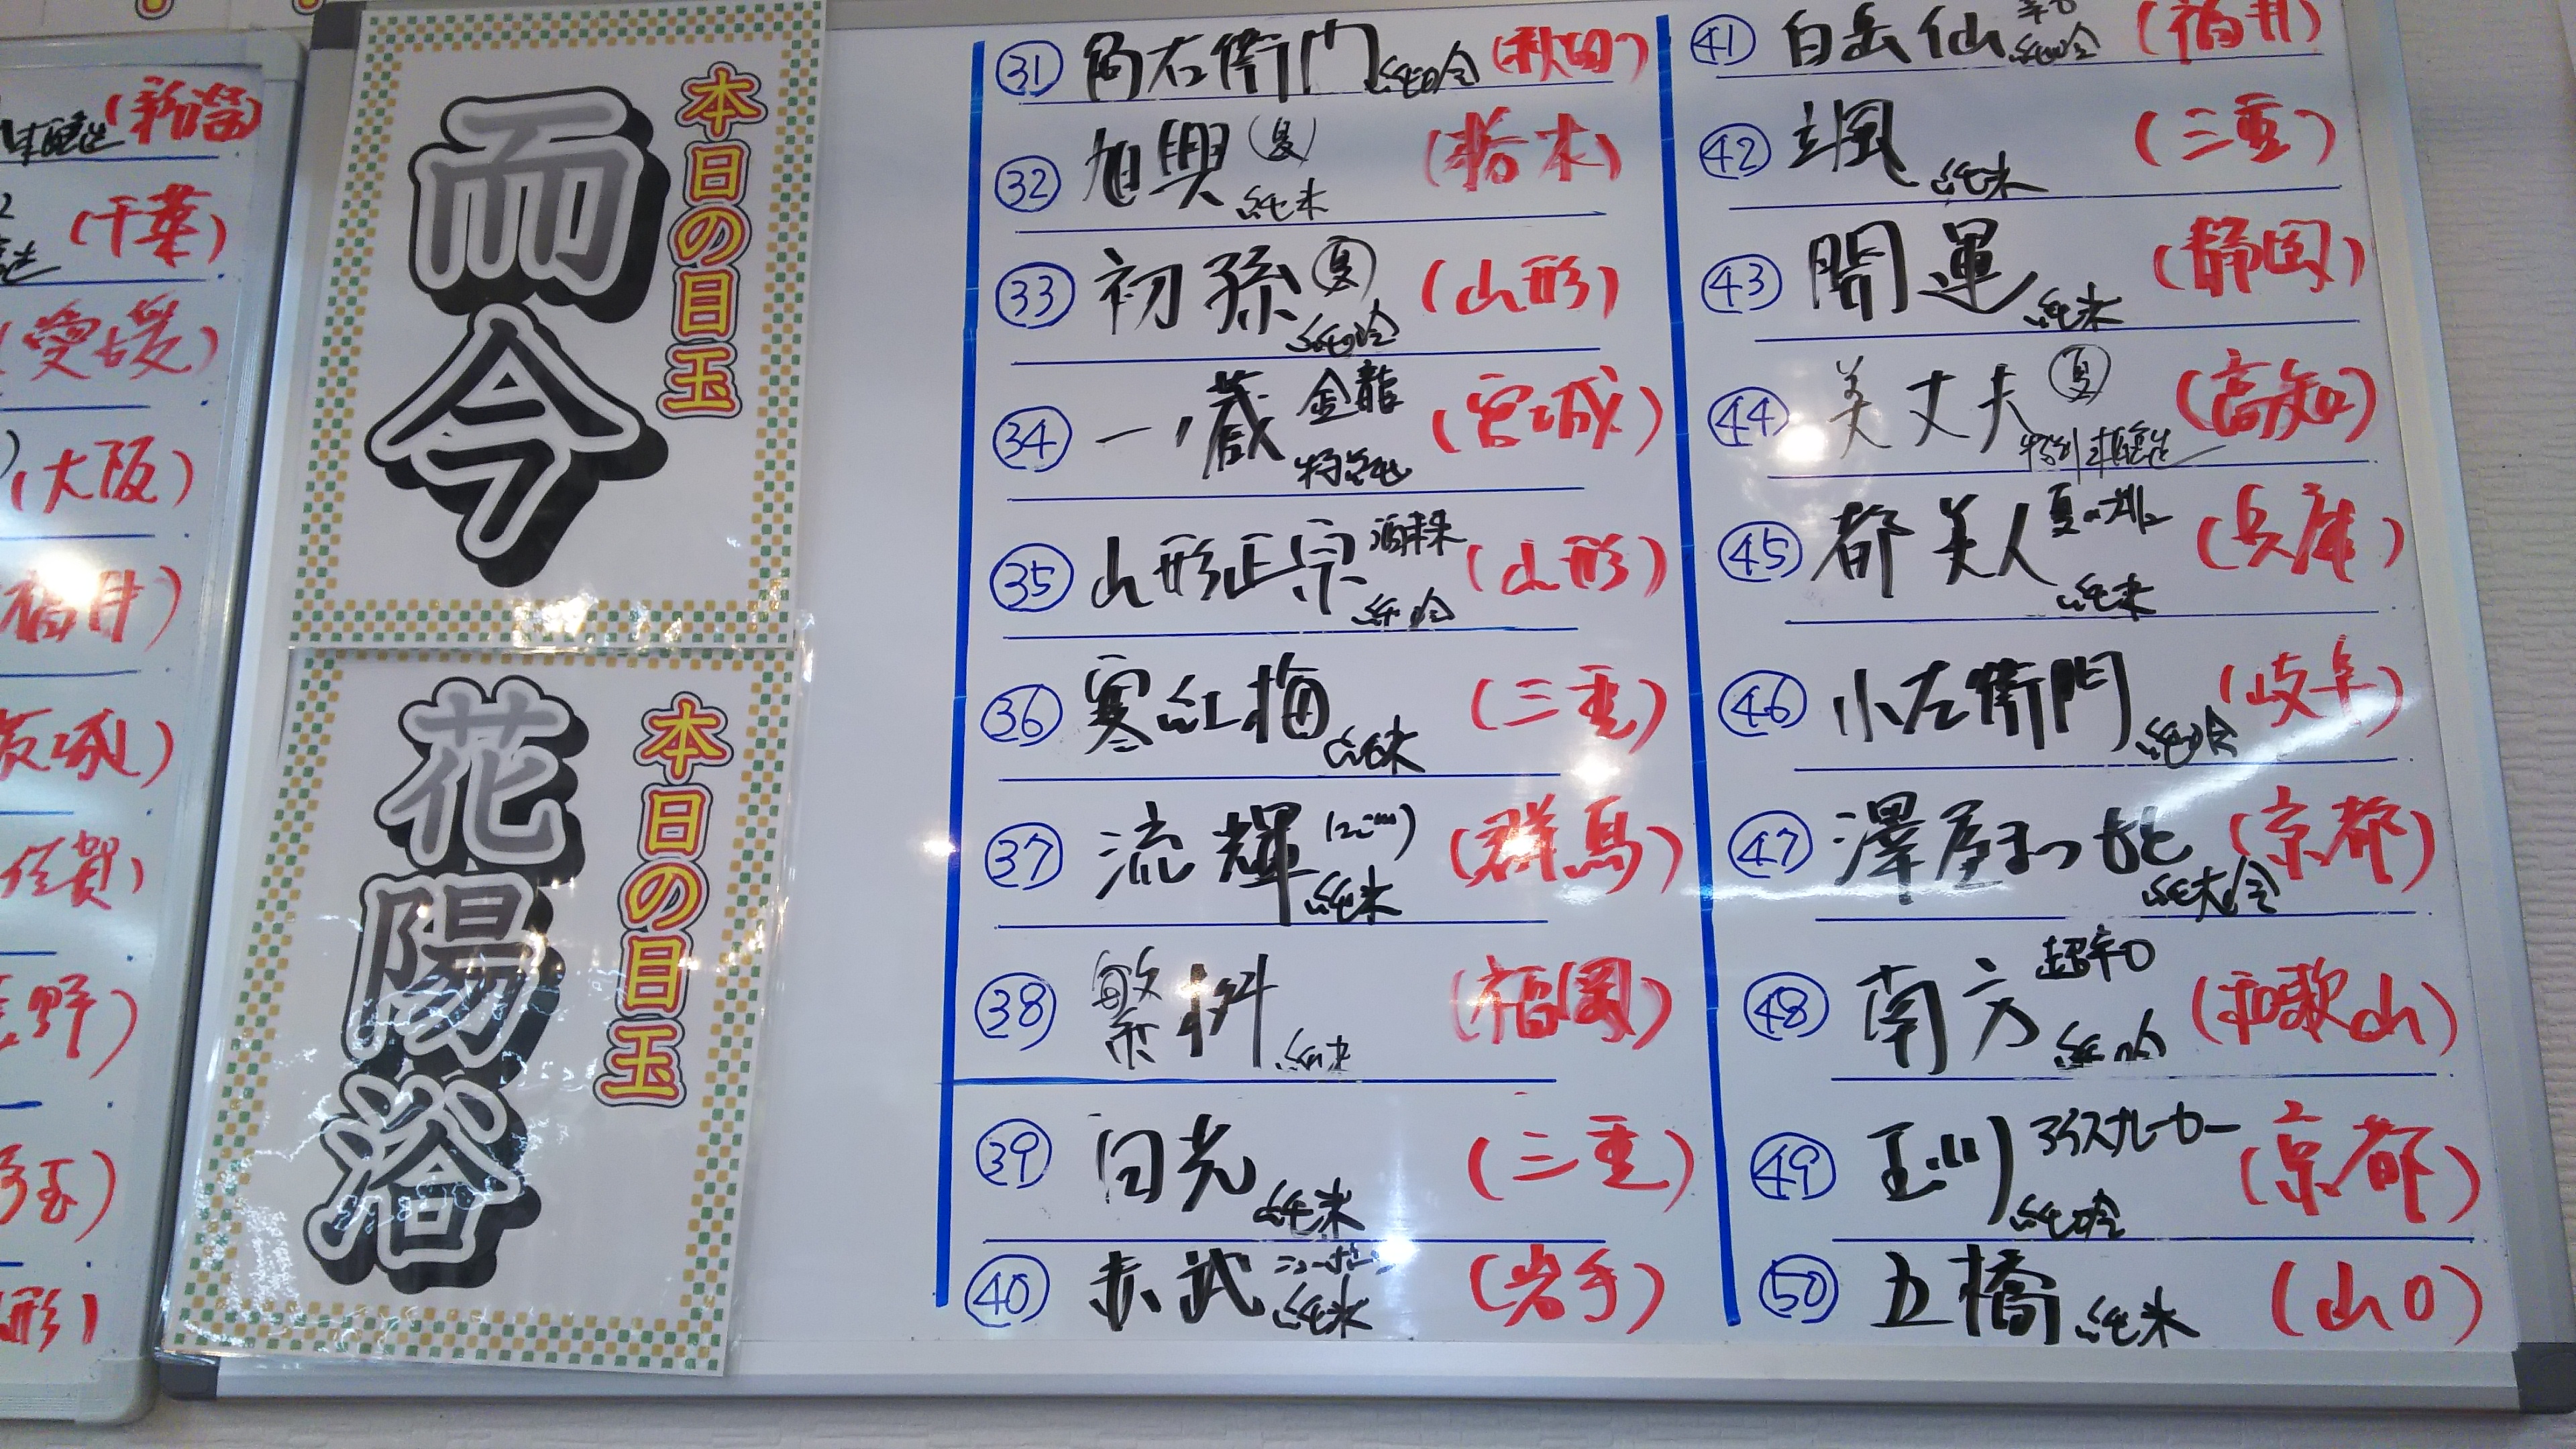 (新潟)
(千葉)
(愛媛)
(大阪)
福井)
佐賀)
野)
玉)
形)
本日の目玉
而今
本日の目玉
花陽浴
㉛ 角右衛門 純吟 (秋田)
㉜ 旭興 (夏) 純米 (栃木)
㉝ 初孫 夏 純吟 (山形)
㉞ 一ノ蔵 金龍 特純 (宮城)
㉟ 山形正宗 酒未来 純吟 (山形)
㊱ 寒紅梅 純米 (三重)
㊲ 流輝 純米 (群馬)
㊳ 繁桝 純米 (福岡)
㊴ 日光 純米 (三重)
㊵ 赤武 純米 (岩手)
㊶ 白岳仙 辛口 純吟 (福井)
㊷ 颯 純米 (三重)
㊸ 開運 純米 (静岡)
㊹ 美丈夫 夏 特別本醸造 (高知)
㊺ 都美人 純米 (兵庫)
㊻ 小左衛門 純吟 (岐阜)
㊼ 澤屋まつもと 純大吟 (京都)
㊽ 南方 超辛口 純吟 (和歌山)
㊾ 玉川 アイスブレーカー 純吟 (京都)
㊿ 五橋 純米 (山口)